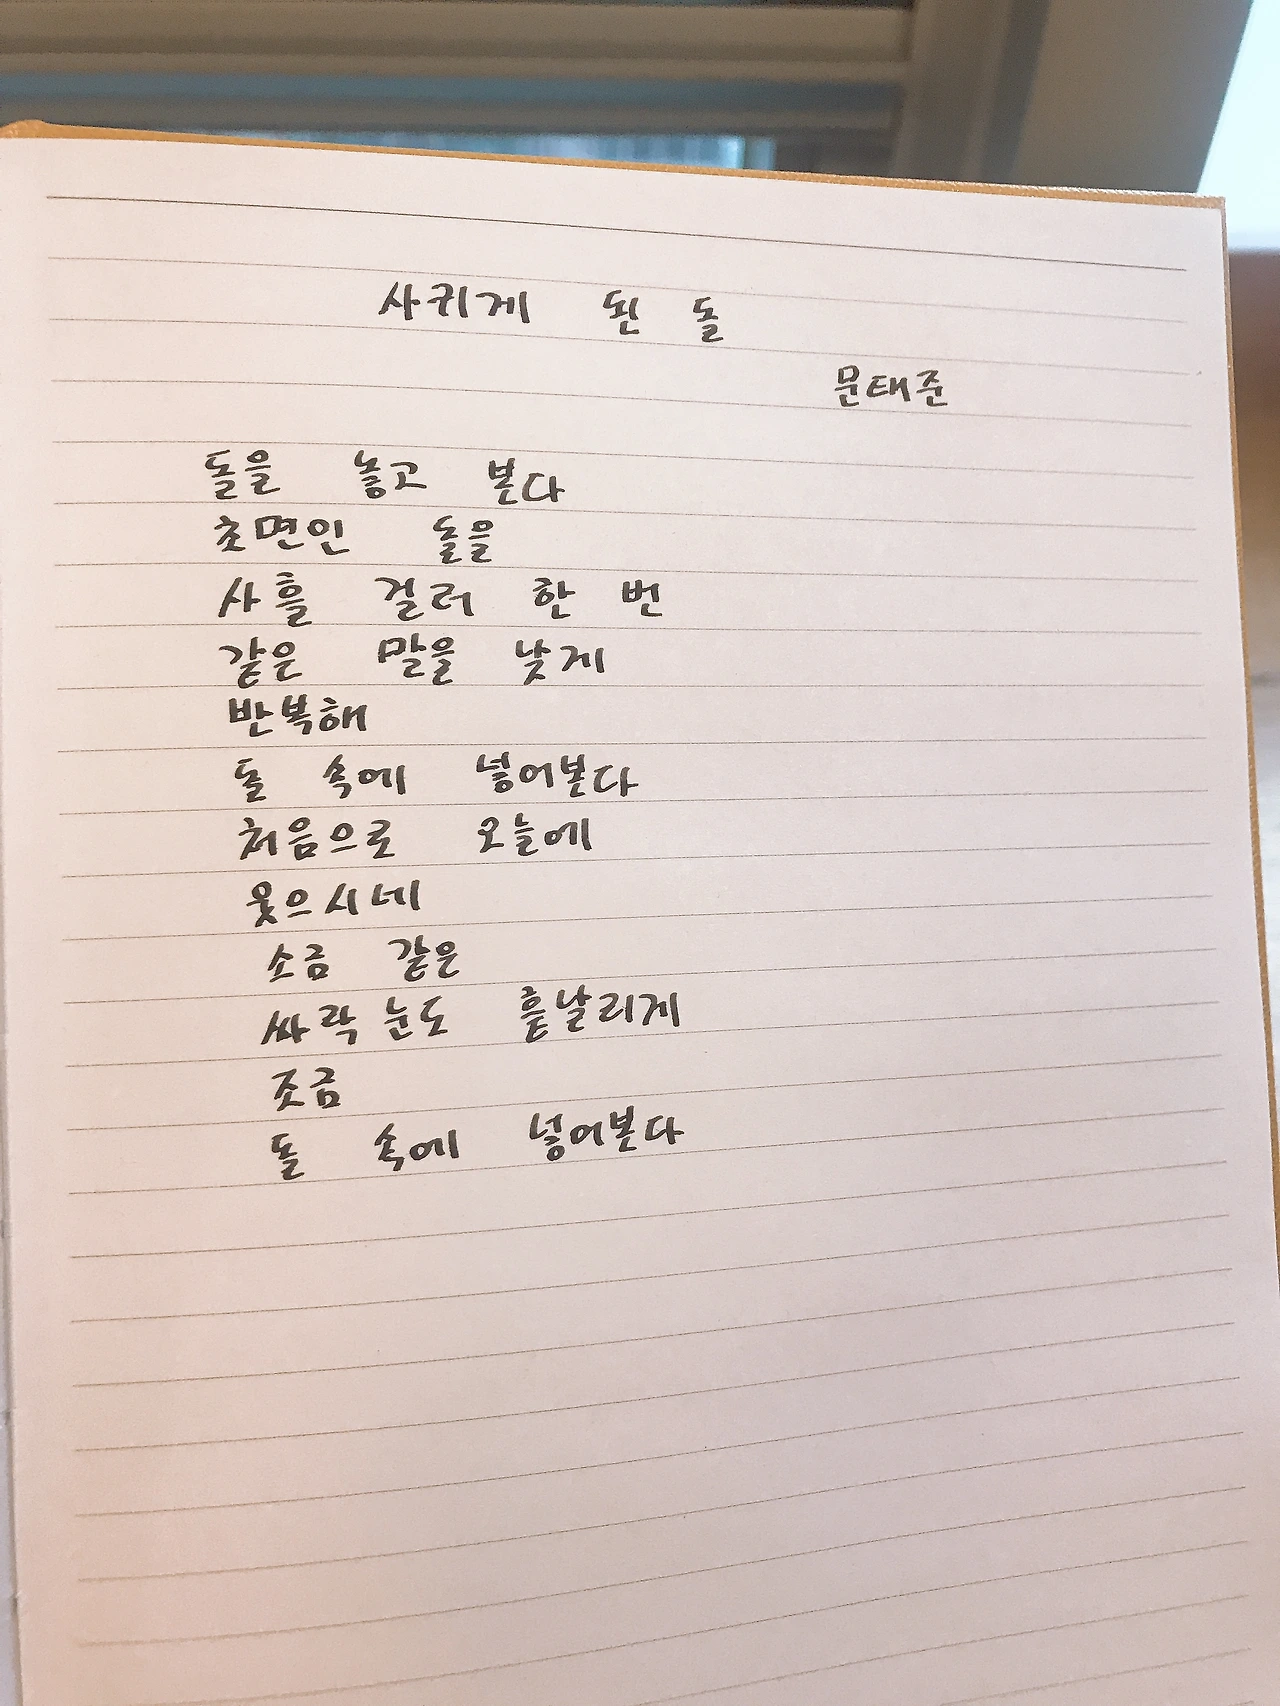 사귀게 된 돌
문태준
돌을 놓고 본다
초면인 돌을
사흘 걸러 한 번
같은 말을 낮게
반복해
돌 속에 넣어본다
처음으로 오늘에
웃으시네
소금 같은
싸락눈도 흩날리게
조금
돌 속에 넣어본다